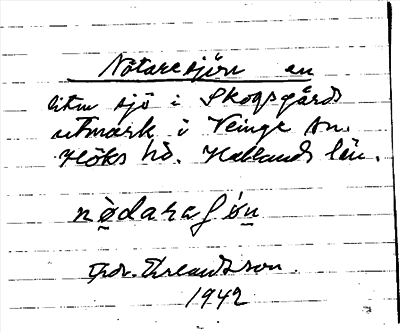 Nötaresjön en
liten sjö i Skogsgårds
utmark i Veinge sn.
Höks hd. Hallands län.
nọ̈daraʃọ̈n
Thor. Erlandsson.
1942